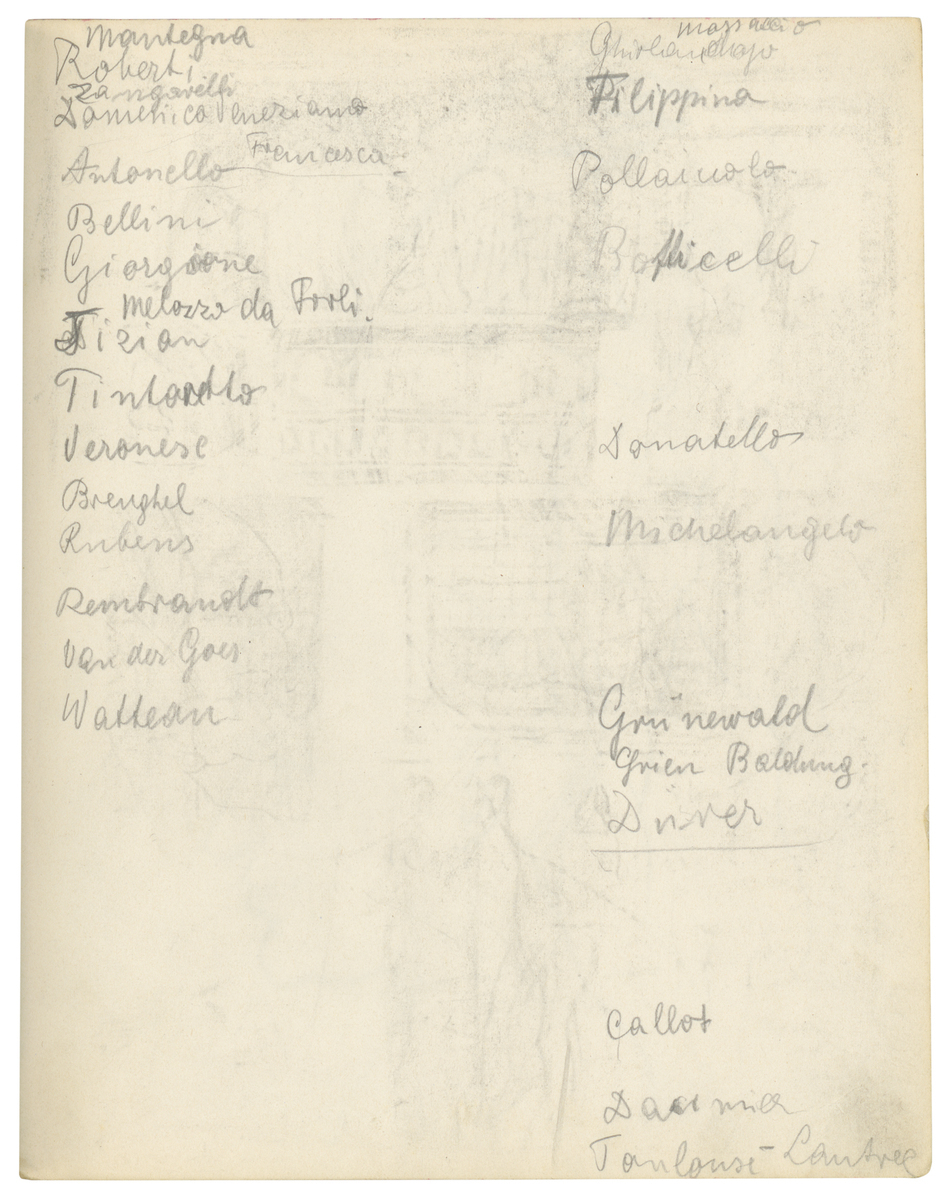 Mantegna
Roberti
Zanganelli
Domenico Veneziano
Francesca
Antonello
Bellini
Giorgione
Melozzo da Forli.
Tizian
Tintoretto
Veronese
Breughel
Rubens
Rembrandt
Van der Goes
Watteau
Massaccio
Ghirlandajo
Filippino
Pollaiuolo
Botticelli
Donatello
Michelangelo
Grünewald
Grien Baldung.
Dürer
Callot
Daumier
Toulouse-Lautrec